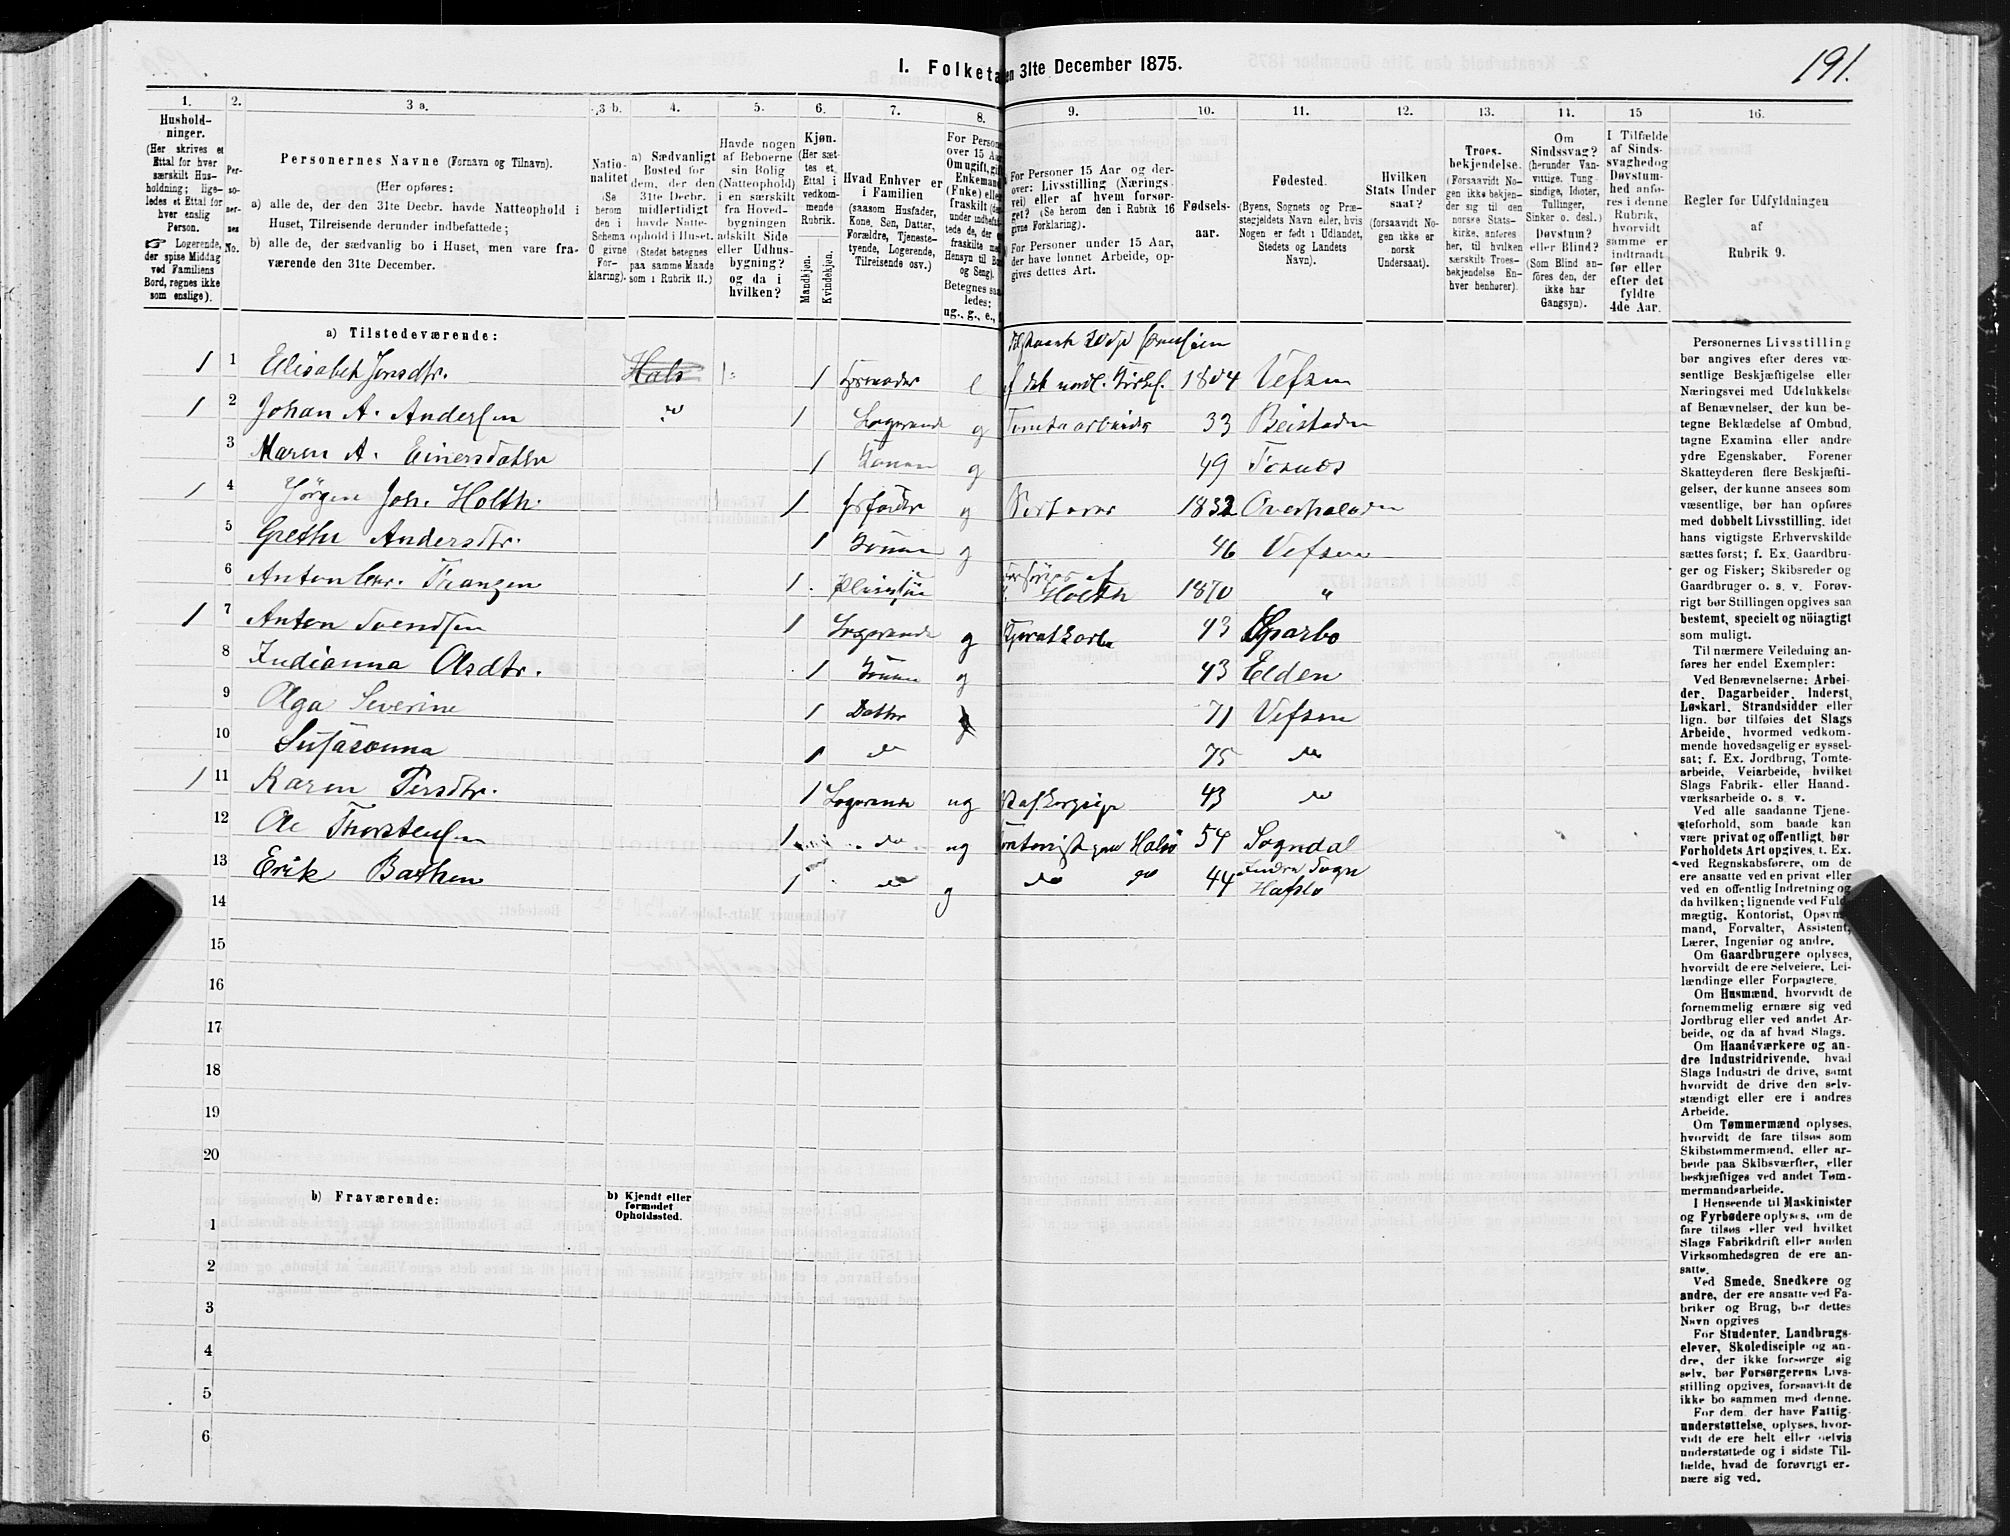 191.
I. Folketa en 31te December 1875.
1. 2. 3 a. 3 b. 4. 5. 6. 7. 8. 9. 10. 11. 12. 13. 14. 15 16.
Hushold-
ninger.
(Her skrives et
Ettal for hver
særskilt Hus-
holdning; lige-
ledes et Ettal for
hver enslig
Person.
☞ Logerende,
der spise Middag
ved Familiens
Bord, regnes ikke
som enslige).
Per-
so-
ner-
nes
No.
Personernes Navne (Fornavn og Tilnavn).
(Her opføres:
a) alle de, der den 31te Decbr. havde Natteophold i
Huset, Tilreisende derunder indbefattede;
b) alle de, der sædvanlig bo i Huset, men vare fra-
værende den 31te December.
Natio-
nalitet
(Se
herom
den i
Schema
givne
For-
klaring).
a) Sædvanligt
Bosted for
dem, der den
31te Decbr.
midlertidigt
havde Natte-
ophold i Huset.
(Stedet betegnes
paa samme Maade
som i Rubrik 11.)
Havde nogen
af Beboerne
sin Bolig
(Natteophold)
i en særskilt
fra Hoved-
bygningen
adskilt Side
eller Udhus-
bygning?
og da i
hvilken?
Kjøn.
(Her sæt-
tes et
Ettal i
vedkom-
mende
Rubrik.
Mandkjøn.
Kvindekjøn.
Hvad Enhver er
i Familien
(saasom Husfader,
Kone, Søn, Datter,
Forældre, Tjeneste-
tyende, Logerende,
Tilreisende osv.)
For Persone
over 15 Aa
Om ugift, gift
Enkemand
(Fuke) elle
fraskilt (de
under indbefat-
tede de, der e
fraskilte me
Hensyn til Bo
og Seng).
Betegnes saa
ledes:
ug., g., e.,
For Personer 15 Aar og der-
over: Livsstilling (Nærings-
vei) eller af hvem forsør-
get? (Se herom den i Rubrik 16
givne Forklaring).
For Personer under 15 Aar,
der have lønnet Arbeide, op-
gives dettes Art.
Fødsels-
aar.
Fødested.
(Byens, Sognets og Præ-
stegjeldets Navn eller, hvis
Nogen er født i Udlandet,
Stedets og Landets
Navn).
Hvilken
Stats Under
saat?
(forsaavidt No-
gen ikke er
norsk
Undersaat).
Troes-
bekjendelse.
(Forsaavidt No-
gen ikke bekjen-
der sig til den
norske Stats-
kirke, anføres
her, til hvilken
særskilt Troes-
bekjendelse En-
hver henhører).
Om
Sindssvag?
(herunder Van-
vittige, Tung-
sindige, Idioter,
Tullinger,
Sinker o. desl.)
Døvstum?
eller Blind?
(Som Blind an-
føres den, der
ikke har
Gangsyn).
I Tilfælde
af Sinds-
svaghed og
Døvstum-
hed anfø-
res i denne
Rubrik,
hvorvidt
samme er
indtraadt
før eller
efter det
fyldte
4de Aar.
Regler for Udfyldningen
af
Rubrik 9.
a) Tilstedeværende:
1 1 Elisabet Jonsdtr. Hals 1 e 1804 Vefsen
1 2 Johan A. Andersen do 1 Logerende g Tomtearbeider 33 Beistaden
3 Maren A. Einersdatter 1 Konen g 49
1 4 Jørgen Joh. Holth. 1 Husfader g 1832 Overhalden
5 Grethe Andersdtr. 1 Konen g 46 Vefsen
6 Anton Chr. 1 Pleiesøn Forsørges af Holth 1870 "
1 7 Anton Svendsen 1 Logerende g 43 Sparbo
8 Indianna Olsdtr. 1 Konen g 43 Elden
9 Olga Severine 1 Datter 71 Vefsen
10 Susasanna 1 do 75 do
1 11 Karen Persdtr. 1 Logerende ug 43 do
12 Ole Thorstensen 1 do ug Kontorist paa Halsø 54 Sogndal
13 Erik Bathen 1 do g do do 44 Indre Sogn Hafslo
14
15
16
17
18
19
20
b) Fraværende:
b) Kjendt eller
formodet
Opholdssted.
1
2
3
4
5
6
Personernes Livsstilling
bør angives efter deres væ-
sentlige Beskjæftigelse eller
Næringsvei med Udelukkelse
af Benævnelser, der kun be-
tegne Beklædelse af Ombud,
tagne Examina eller andre
ydre Egenskaber. Forener
Skatteyderen flere Beskjæfti-
gelser, der kunne ansees som
væsentlige, bør han opføres
med dobbelt Livsstilling, idet
hans vigtigste Erhvervskilde
sættes først; f. Ex. Gaardbru-
ger og Fisker; Skibsreder og
Gaardbruger o. s. v. Forøv-
rigt bør Stillingen opgives saa
bestemt, specielt og nøiagtigt
som muligt.
Til nærmere Veiledning an-
føres her endel Exempler:
Ved Benævnelserne: Arbei-
der, Dagarbeider, Inderst,
Løskarl, Strandsidder eller
lign. bør tilføies det Slags
Arbeide, hvormed vedkom-
mende hovedsagelig er syssel-
sat; f. Ex. Jordbrug, Tomte-
arbeide, Veiarbeide, hvilket
Slags Fabrik- eller Haand-
værksarbeide o. s. v.
Ved alle saadanne Tjene-
steforhold, som baade kan
være privat og offentligt, bør
Forholdets Art opgives, t. Ex.
ved Regnskabsførere, om de
ere ansatte ved en privat eller
ved en offentlig Indretning og
da hvilken; lignende ved Fuld-
mægtig, Kontorist, Opsyns-
mand, Forvalter, Assistent,
Lærer, Ingeniør og andre.
Om Gaardbrugere oplyses,
hvorvidt de ere Selveiere, Lei-
lændinge eller Forpagtere.
Om Husmænd, hvorvidt de
fornemmelig ernære sig ved
Jordbrug eller ved andet Ar-
beide, og da af hvad Slags.
Om Haandværkere og an-
dre Industridrivende, hvad
Slags Industri de drive, samt
hvorvidt de drive den selv-
stændigt eller ere i andres
Arbeide.
Om Tømmermænd oplyses,
hvorvidt de fare tilsøs som
Skibstømmermænd, eller ar-
beide paa Skibsværfter, eller
beskjæftiges ved andet Tøm-
mermandsarbeide.
I Henseende til Maskinister
og Fyrbødere oplyses, om de
fare tilsøs eller ved hvilket
Slags Fabrikdrift eller anden
Virksomhedsgren de ere an-
satte.
Ved Smede, Snedkere og
andre, der ere ansatte ved Fa-
briker og Brug, bør dettes
Navn opgives
For Studenter, Landbrugs-
elever, Skoledisciple og an-
dre, der ikke forsørge sig
selv, bør Forsørgerens Livs-
stilling opgives, forsaavidt de
ikke bo sammen med denne.
For dem, der have Fattig-
understøttelse, oplyses, hvor-
vidt de ere helt eller delvis
understøttede og i sidste Til-
fælde, hvad de forøvrigt er-
nære sig ved.